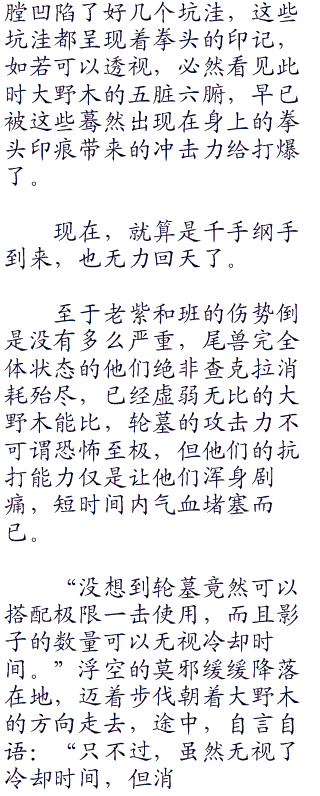 膛凹陷了好几个坑洼，这些
坑洼都呈现着拳头的印记，
如若可以透视，必然看见此
时大野木的五脏六腑，早已
被这些蓦然出现在身上的拳
头印痕带来的冲击力给打爆
了。
现在，就算是千手纲手
到来，也无力回天了。
至于老紫和班的伤势倒
是没有多么严重，尾兽完全
体状态的他们绝非查克拉消
耗殆尽，已经虚弱无比的大
野木能比，轮墓的攻击力不
可谓恐怖至极，但他们的抗
打能力仅是让他们浑身剧
痛，短时间内气血堵塞而
已。
“没想到轮墓竟然可以
搭配极限一击使用，而且影
子的数量可以无视冷却时
间。”浮空的莫邪缓缓降落
在地，迈着步伐朝着大野木
的方向走去，途中，自言自
语：“只不过，虽然无视了
冷却时间，但消